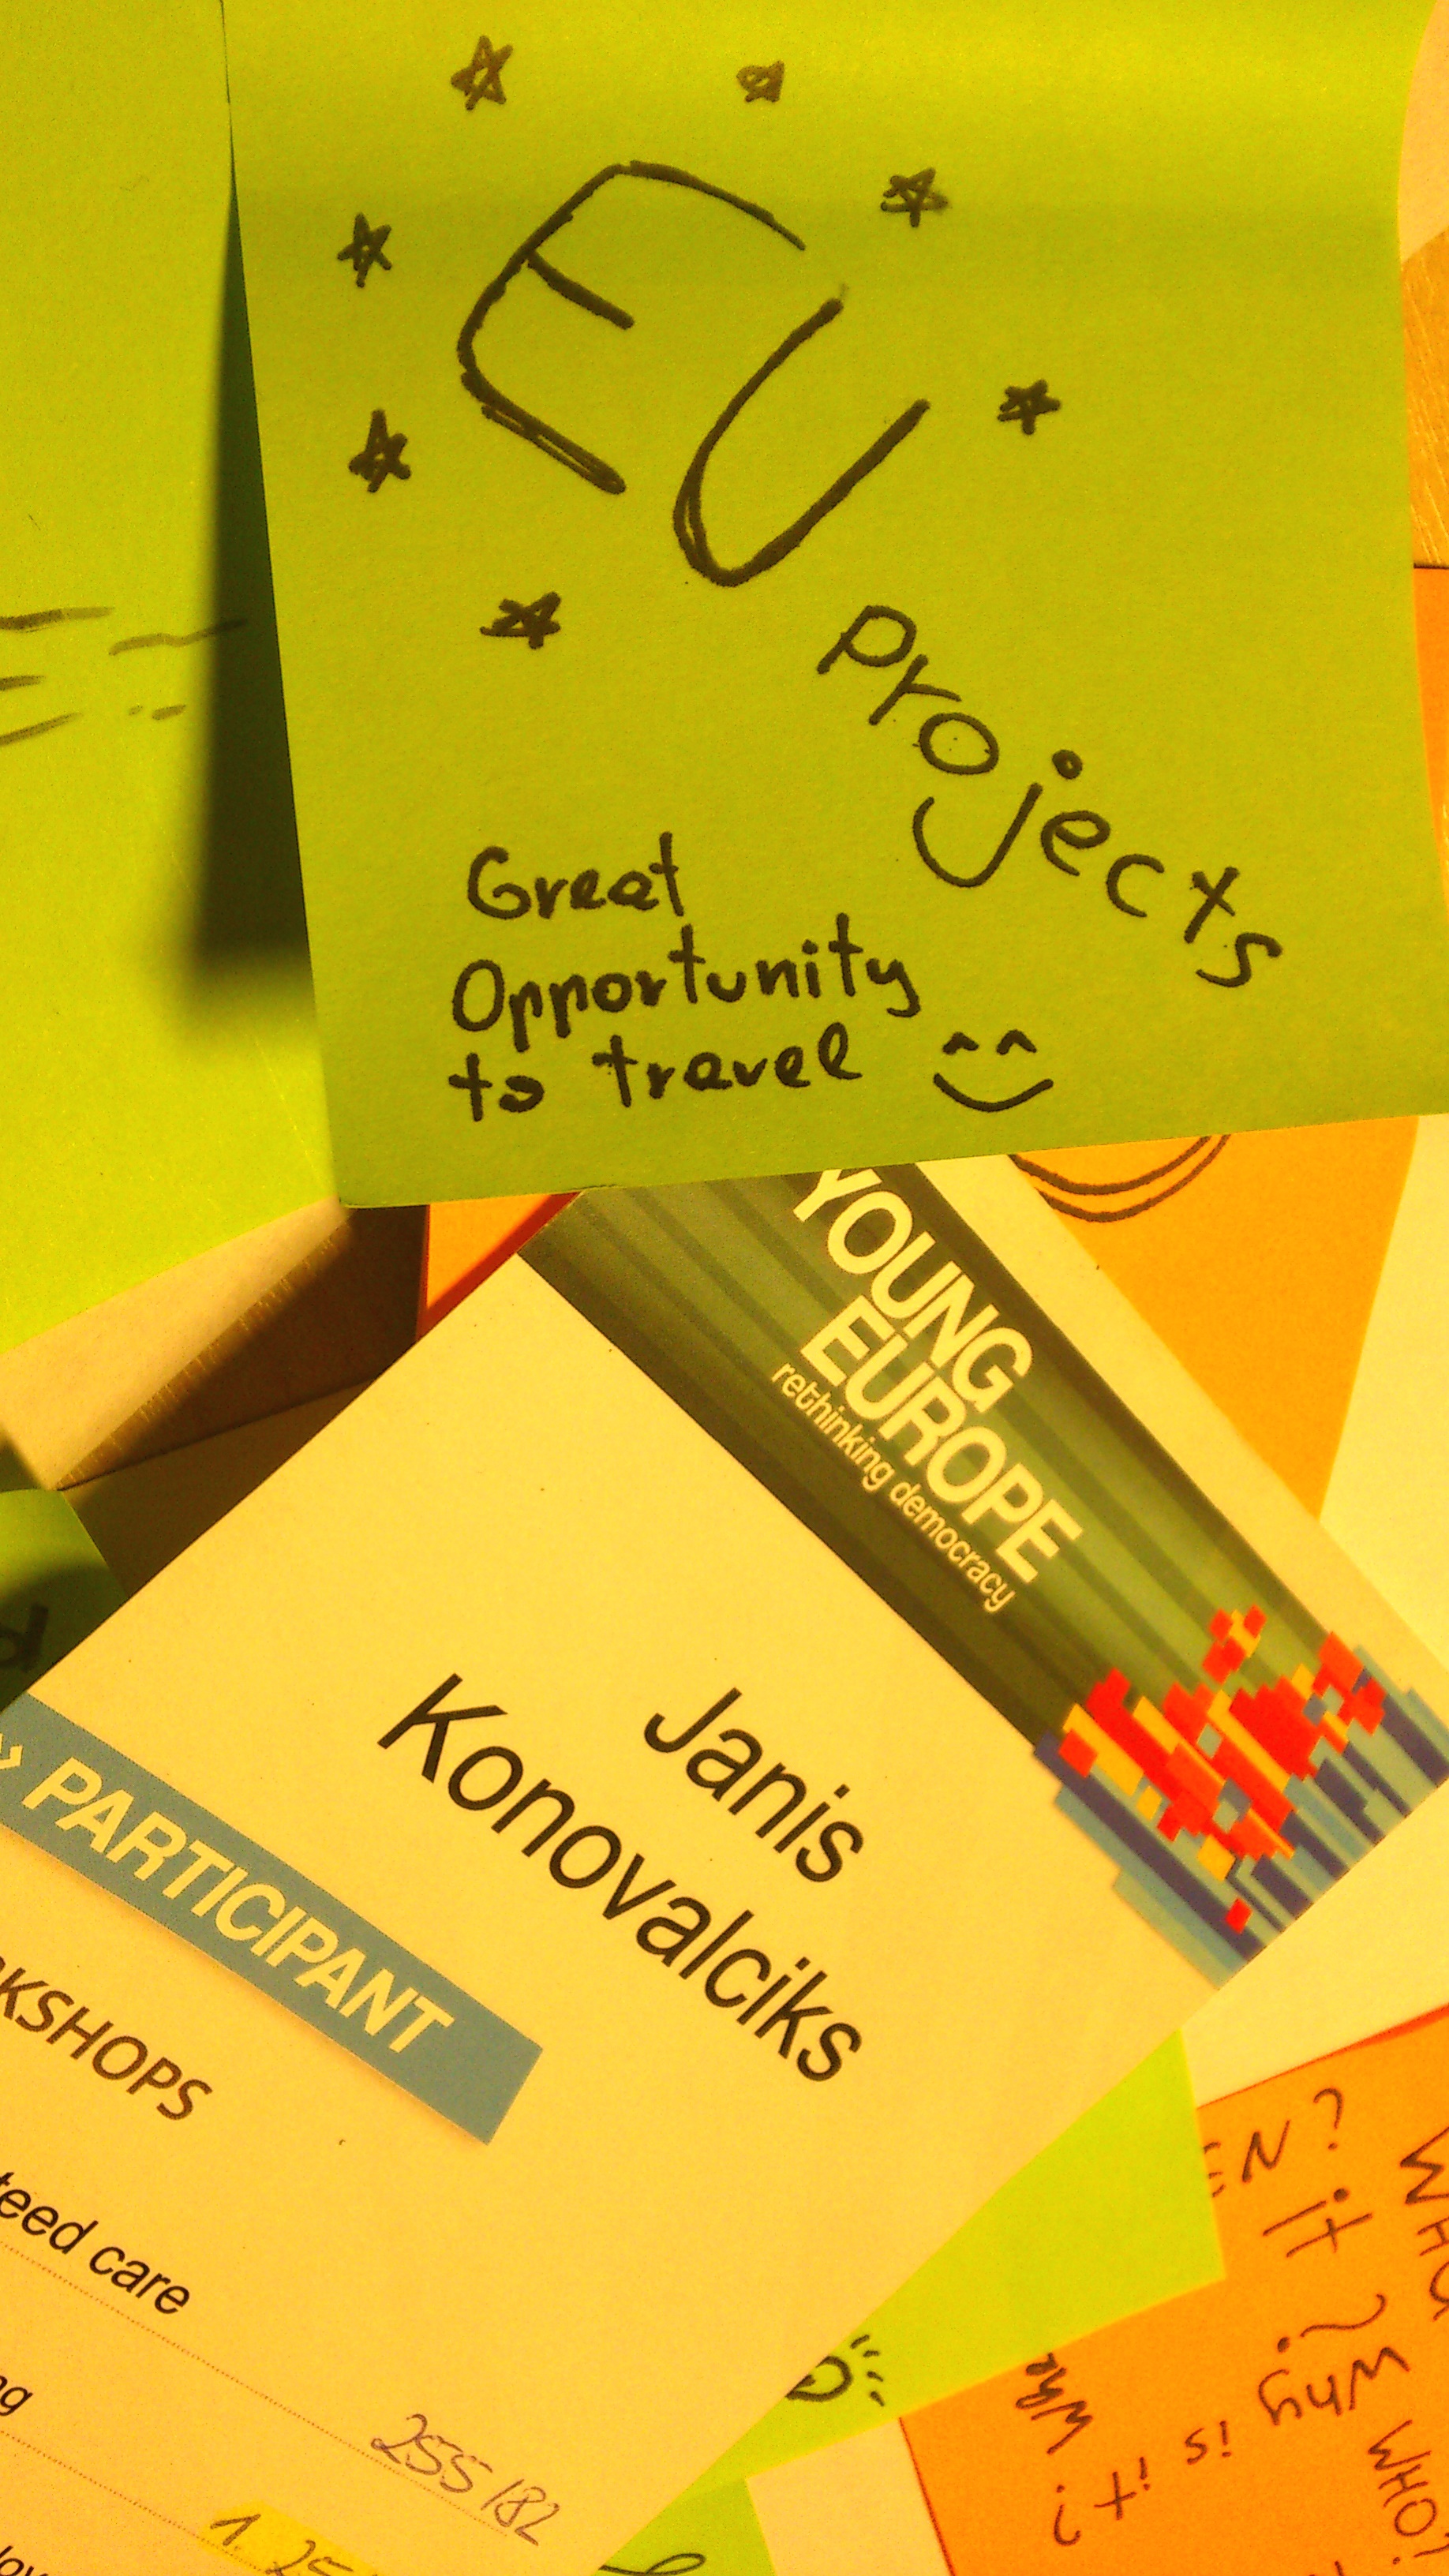 EU
projects
Great
Opportunity
to travel
YOUNG
EUROPE
rethinking democracy
Janis
Konovalciks
» PARTICIPANT
KSHOPS
teed care
255/182
WHO?
it?
Why is it?